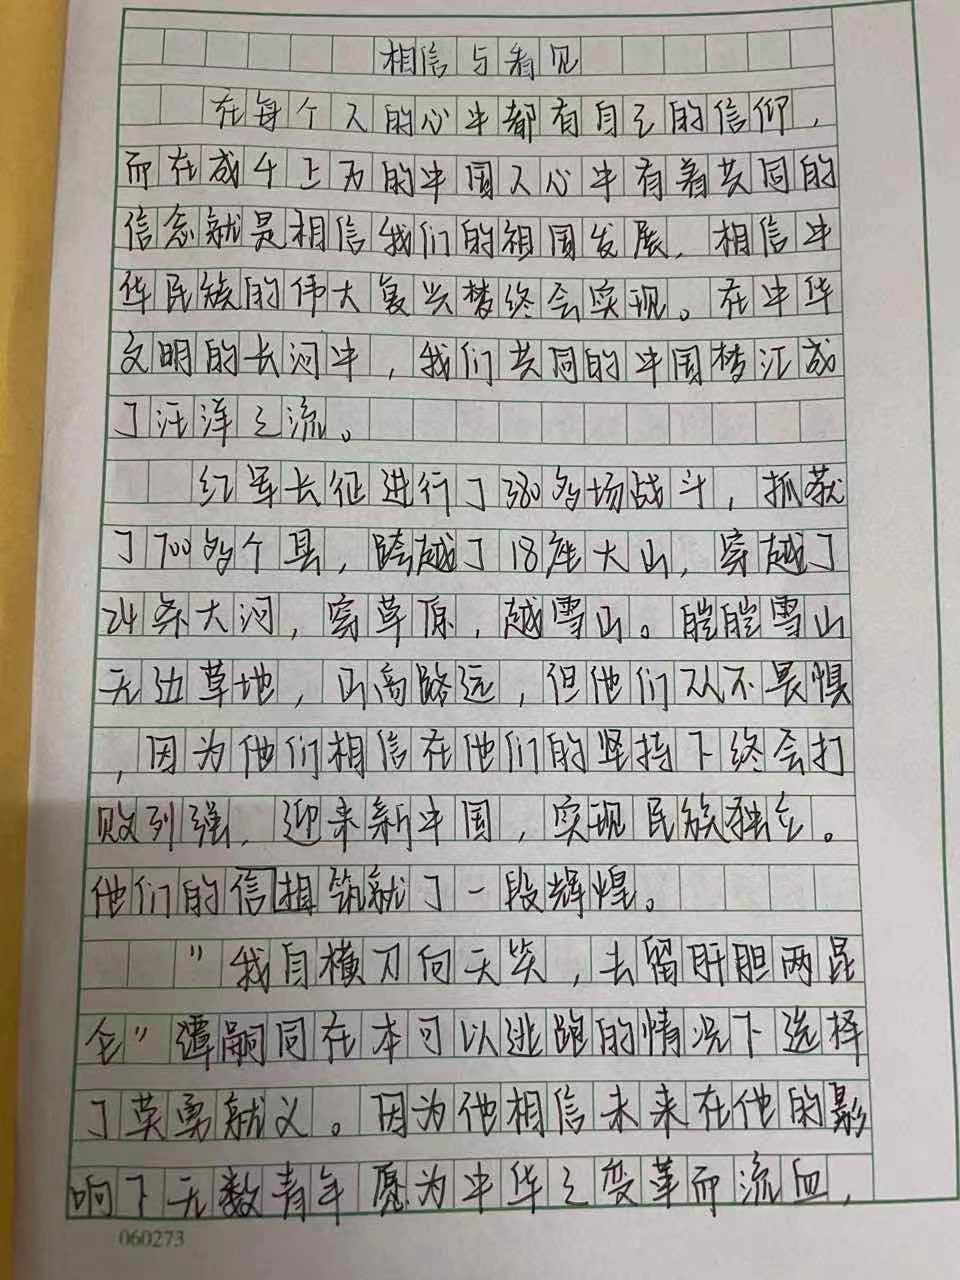 相信与看见
在每个人的心中都有自己的信仰，
而在成千上万的中国人心中有着共同的
信念就是相信我们的祖国发展，相信中
华民族的伟大复兴梦终会实现。在中华
文明的长河中，我们共同的中国梦汇成
了汪洋之流。
红军长征进行了380多场战斗，抓获
了700多个县，跨越了18座大山，穿越了
24条大河，穿草原，越雪山。皑皑雪山
无边草地，山高路远，但他们从不畏惧
，因为他们相信在他们的坚持下终会打
败列强，迎来新中国，实现民族独立。
他们的信相筑就了一段辉煌。
"我自横刀向天笑，去留肝胆两昆
仑"谭嗣同在本可以逃跑的情况下选择
了英勇就义。因为他相信未来在他的影
响下无数青年愿为中华之变革而流血，
060273